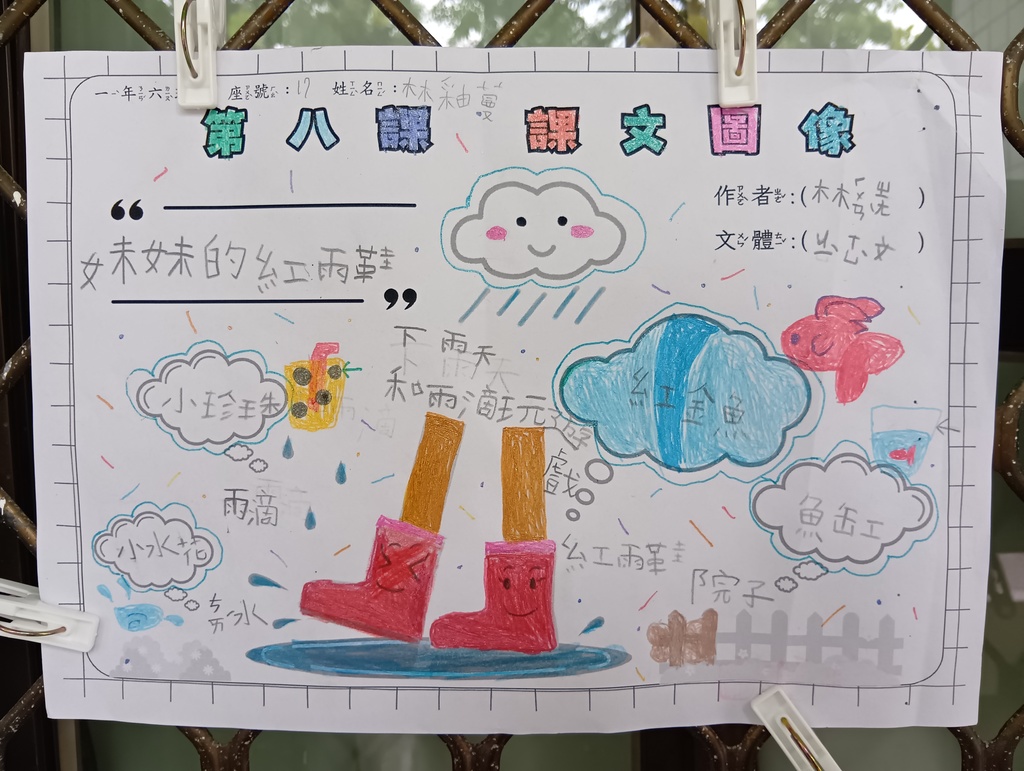 一年六 座號:17 姓名:林秞蔓
第八課 課文圖像
作者:(林 )
文體:( ㄙ文)
“
妹妹的紅雨鞋
”
下雨天
和雨滴玩遊戲
小珍珠
紅金魚
雨滴
魚缸
小水花
紅雨鞋
院子
水